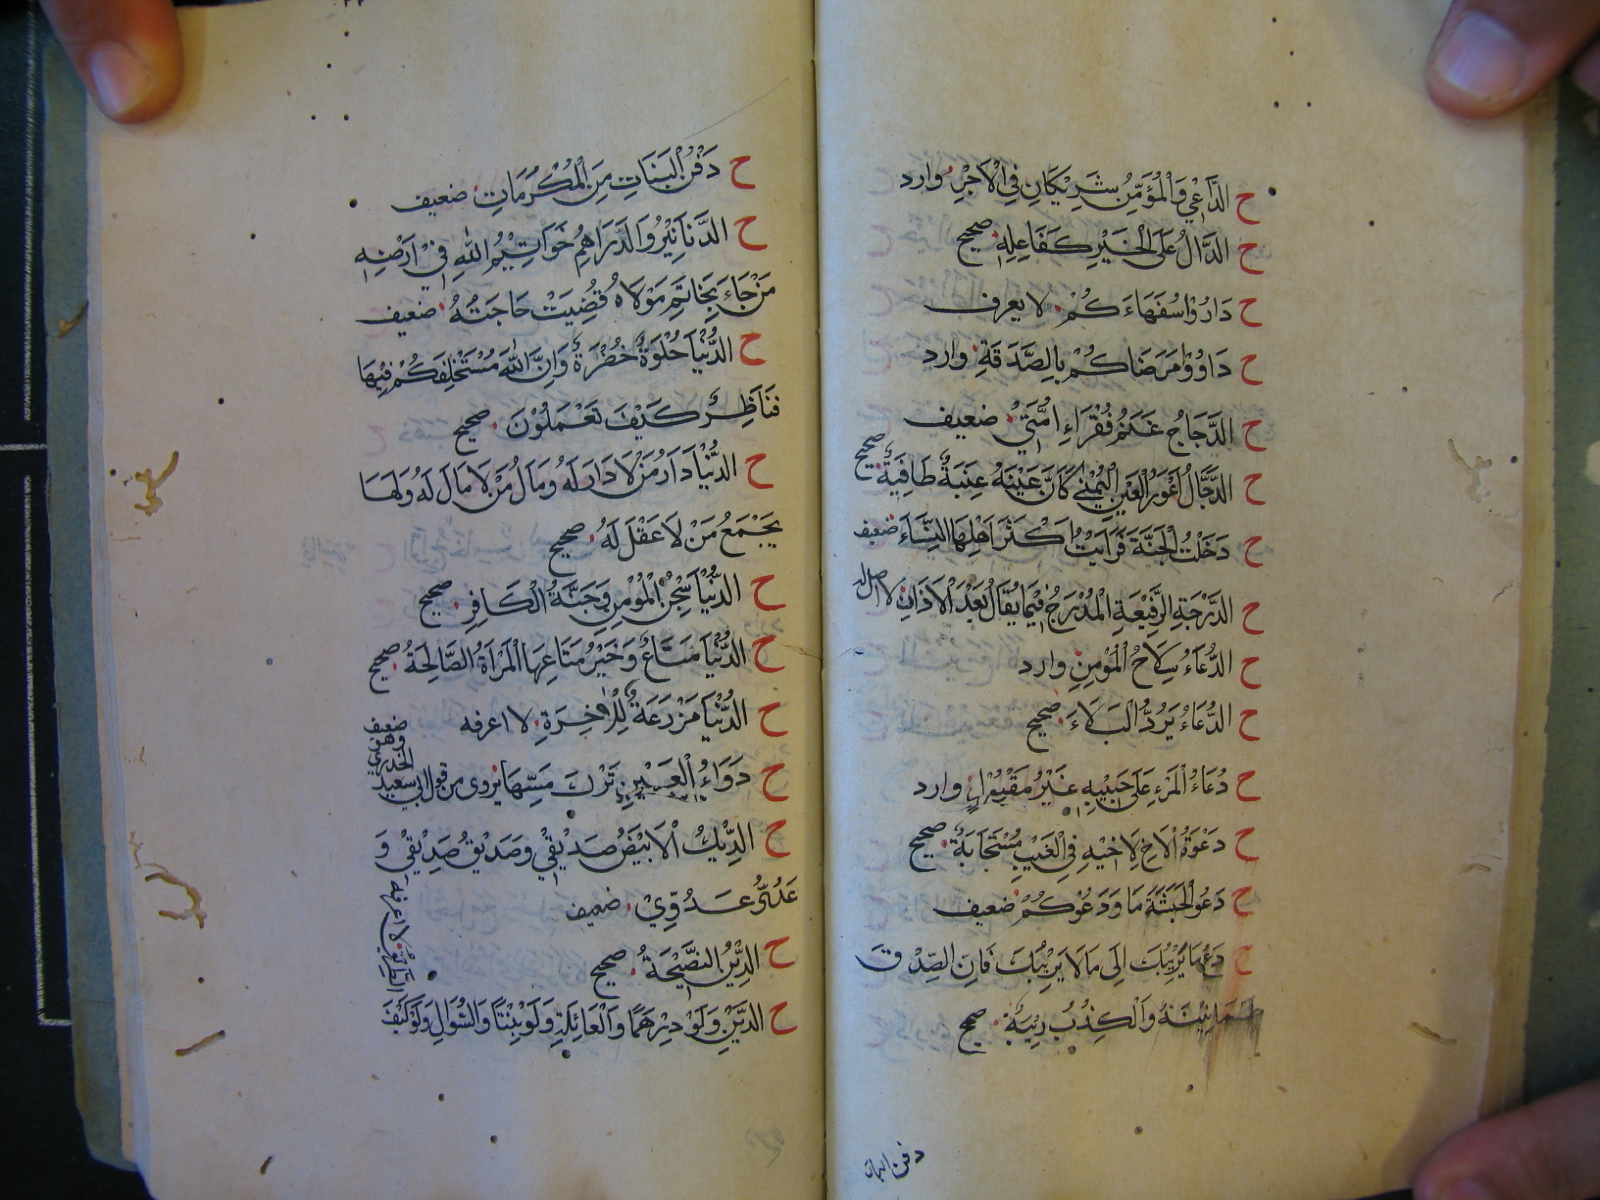 ح الدَّاعِي وَالْمُؤَمِّنُ شَرِيْكَانِ فِي الْاَجْرِ وارد
ح الدَّالُ عَلَى الْخَيْرِ كَفَاعِلِهِ صحيح
ح دَارُوْا سُفَهَاءَكُمْ لا يعرف
ح دَاوُوْا مَرَضَاكُمْ بِالصَّدَقَةِ وارد
ح الدَّجَاجُ غَنَمُ فُقَرَاءِ اُمَّتِيْ ضعيف
ح الدَّجَّالُ اَعْوَرُ الْعَيْنِ الْيُمْنٰى كَاَنَّ عَيْنَهُ عِنَبَةٌ طَافِيَةٌ صحيح
ح دَخَلْتُ الْجَنَّةَ فَرَاَيْتُ اَكْثَرَ اَهْلِهَا النِّسَاءَ ضعيف
ح الدَّرَجَةِ الرَّفِيْعَةِ الْمُدْرَجُ فِيْمَا يُقَالُ بَعْدَ الْاَذَانِ لا اصل له
ح الدُّعَاءُ سِلَاحُ الْمُوْمِنِ وارد
ح الدُّعَاءُ يَرُدُّ الْبَلَاءَ صحيح
ح دُعَاءُ الْمَرْءِ عَلَى حَبِيْبِهِ غَيْرُ مَقْبُوْلٍ وارد
ح دَعْوَةُ الْاَخِ لِاَخِيْهِ فِي الْغَيْبِ مُسْتَجَابَةٌ صحيح
ح دَعُوا الْحَبَشَةَ مَا وَدَعُوْكُمْ ضعيف
ح دَعْ مَا يُرِيْبُكَ اِلَى مَا لَا يُرِيْبُكَ فَاِنَّ الصِّدْقَ
طُمَانِيْنَةٌ وَالْكِذْبُ رِيْبَةٌ صحيح
دفن البنات
ح دَفْنُ الْبَنَاتِ مِنَ الْمَكْرُمَاتِ ضعيف
ح الدَّنَانِيْرُ وَالدَّرَاهِمُ خَوَاتِيْمُ اللّٰهِ فِيْ اَرْضِهِ
مَنْ جَاءَ بِخَاتِمِ مَوْلَاهُ قُضِيَتْ حَاجَتُهُ ضعيف
ح الدُّنْيَا حُلْوَةٌ خُضْرَةٌ وَاِنَّ اللّٰهَ مُسْتَخْلِفَكُمْ فِيْهَا
فَنَاظِرٌ كَيْفَ تَعْمَلُوْنَ صحيح
ح الدُّنْيَا دَارُ مَنْ لَا دَارَ لَهُ وَمَالُ مَنْ لَا مَالَ لَهُ وَلَهَا
يَجْمَعُ مَنْ لَا عَقْلَ لَهُ صحيح
ح الدُّنْيَا سِجْنُ الْمُوْمِنِ وَجَنَّةُ الْكَافِرِ صحيح
ح الدُّنْيَا مَتَاعٌ وَخَيْرُ مَتَاعِهَا الْمَرْاَةُ الصَّالِحَةُ صحيح
ح الدُّنْيَا مَزْرَعَةٌ لِلْاٰخِرَةِ لا اعرفه
ح دَوَاءُ الْعَيْنِ تَرْكُ مَسِّهَا يروى من قول ابى سعيد
الخدري
وهو
ضعيف
ح الدِّيْكُ الْاَبْيَضُ صَدِيْقِيْ وَصَدِيْقُ صَدِيْقِيْ وَ
عَدُوُّ عَدُوِّيْ ضعيف
ح الدِّيْنُ النَّصِيْحَةُ صحيح
ح الدَّيْنُ وَلَوْ دِرْهَمًا وَالْعَائِلَةِ وَلَوْ بِنْتًا وَالسُّوَالِ وَلَوْ كَيْفَ
الطَّرِيْقُ لا اعرفه